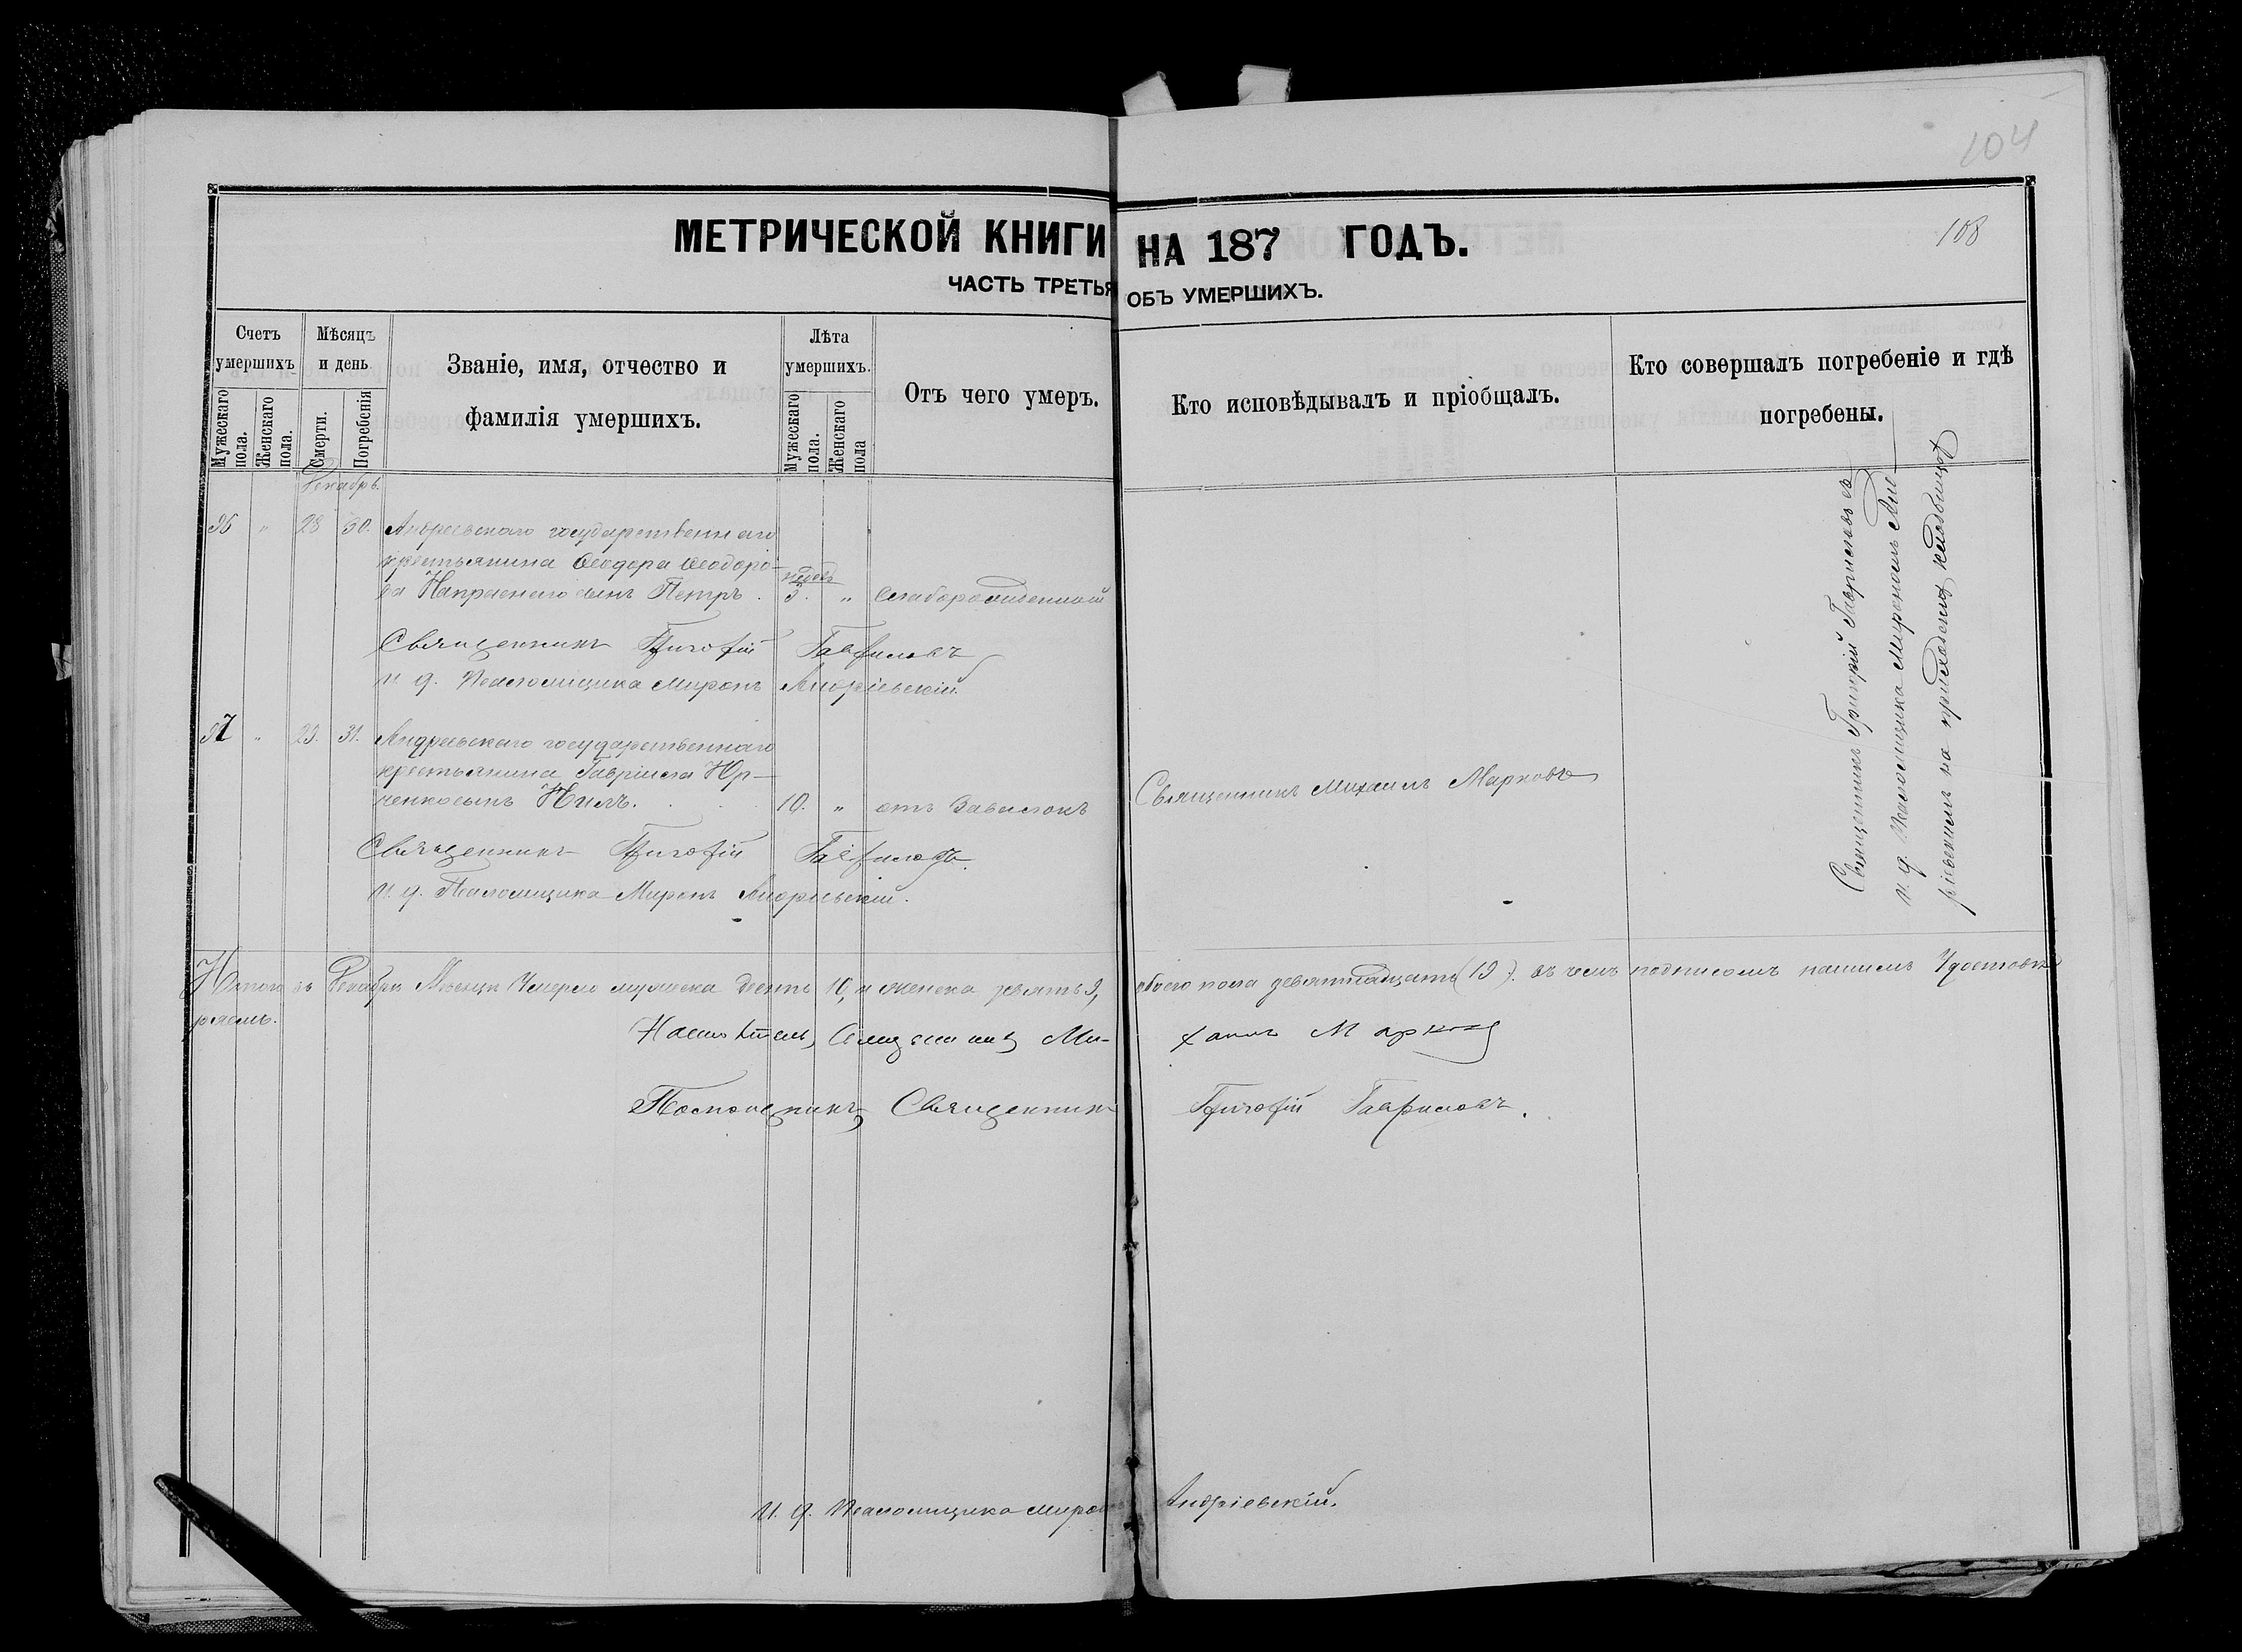 104
МЕТРИЧЕСКОЙ КНИГИ НА 187 ГОДЪ.
108
ЧАСТЬ ТРЕТЬЯ ОБЪ УМЕРШИХЪ.
Счетъ умершихъ
Мужескаго пола.
Женскаго пола.
Мѣсяцъ и день
Смерти.
Погребенія
Званіе, имя, отчество и фамилія умершихъ.
Лѣта умершихъ.
Мужескаго пола.
Женскаго пола
Отъ чего умеръ.
Кто исповѣдывалъ и пріобщалъ.
Кто совершалъ погребеніе и гдѣ погребены.
Декабрь.
36 „ 28 30. Андреевскаго государственнаго
крестьянина Ѳеодора Ѳеодоро-
ва сынъ Петръ . 3. „
Священникъ Григорій Гавриловъ
и. д. Псаломщика Миронъ Андріевскій.
37 „ 29. 31. Андреевскаго государственнаго
крестьянина Гавріила Юр-
ченко сынъ Нилъ. 10. „ отъ Завалокъ
Священникъ Михаилъ Марковъ
Священникъ Григорій Гавриловъ.
и. д. Псаломщика Миронъ Андріевскій.
Священникъ Григорій Гавриловъ съ
и. д. Псаломщика Мирономъ Анд-
ріевскимъ на приходскомъ кладбищѣ
Итого въ Декабрѣ Мѣсяцѣ Умерло мужеска десять 10, и женска девять 9, обоего пола девятнадцать (19). въ чемъ подписомъ нашимъ Удостовѣ-
ряемъ.
Настоятель, Священникъ Михаилъ Марковъ
Помощникъ Священникъ Григорій Гавриловъ.
и. д. Псаломщика Миронъ Андріевскій.